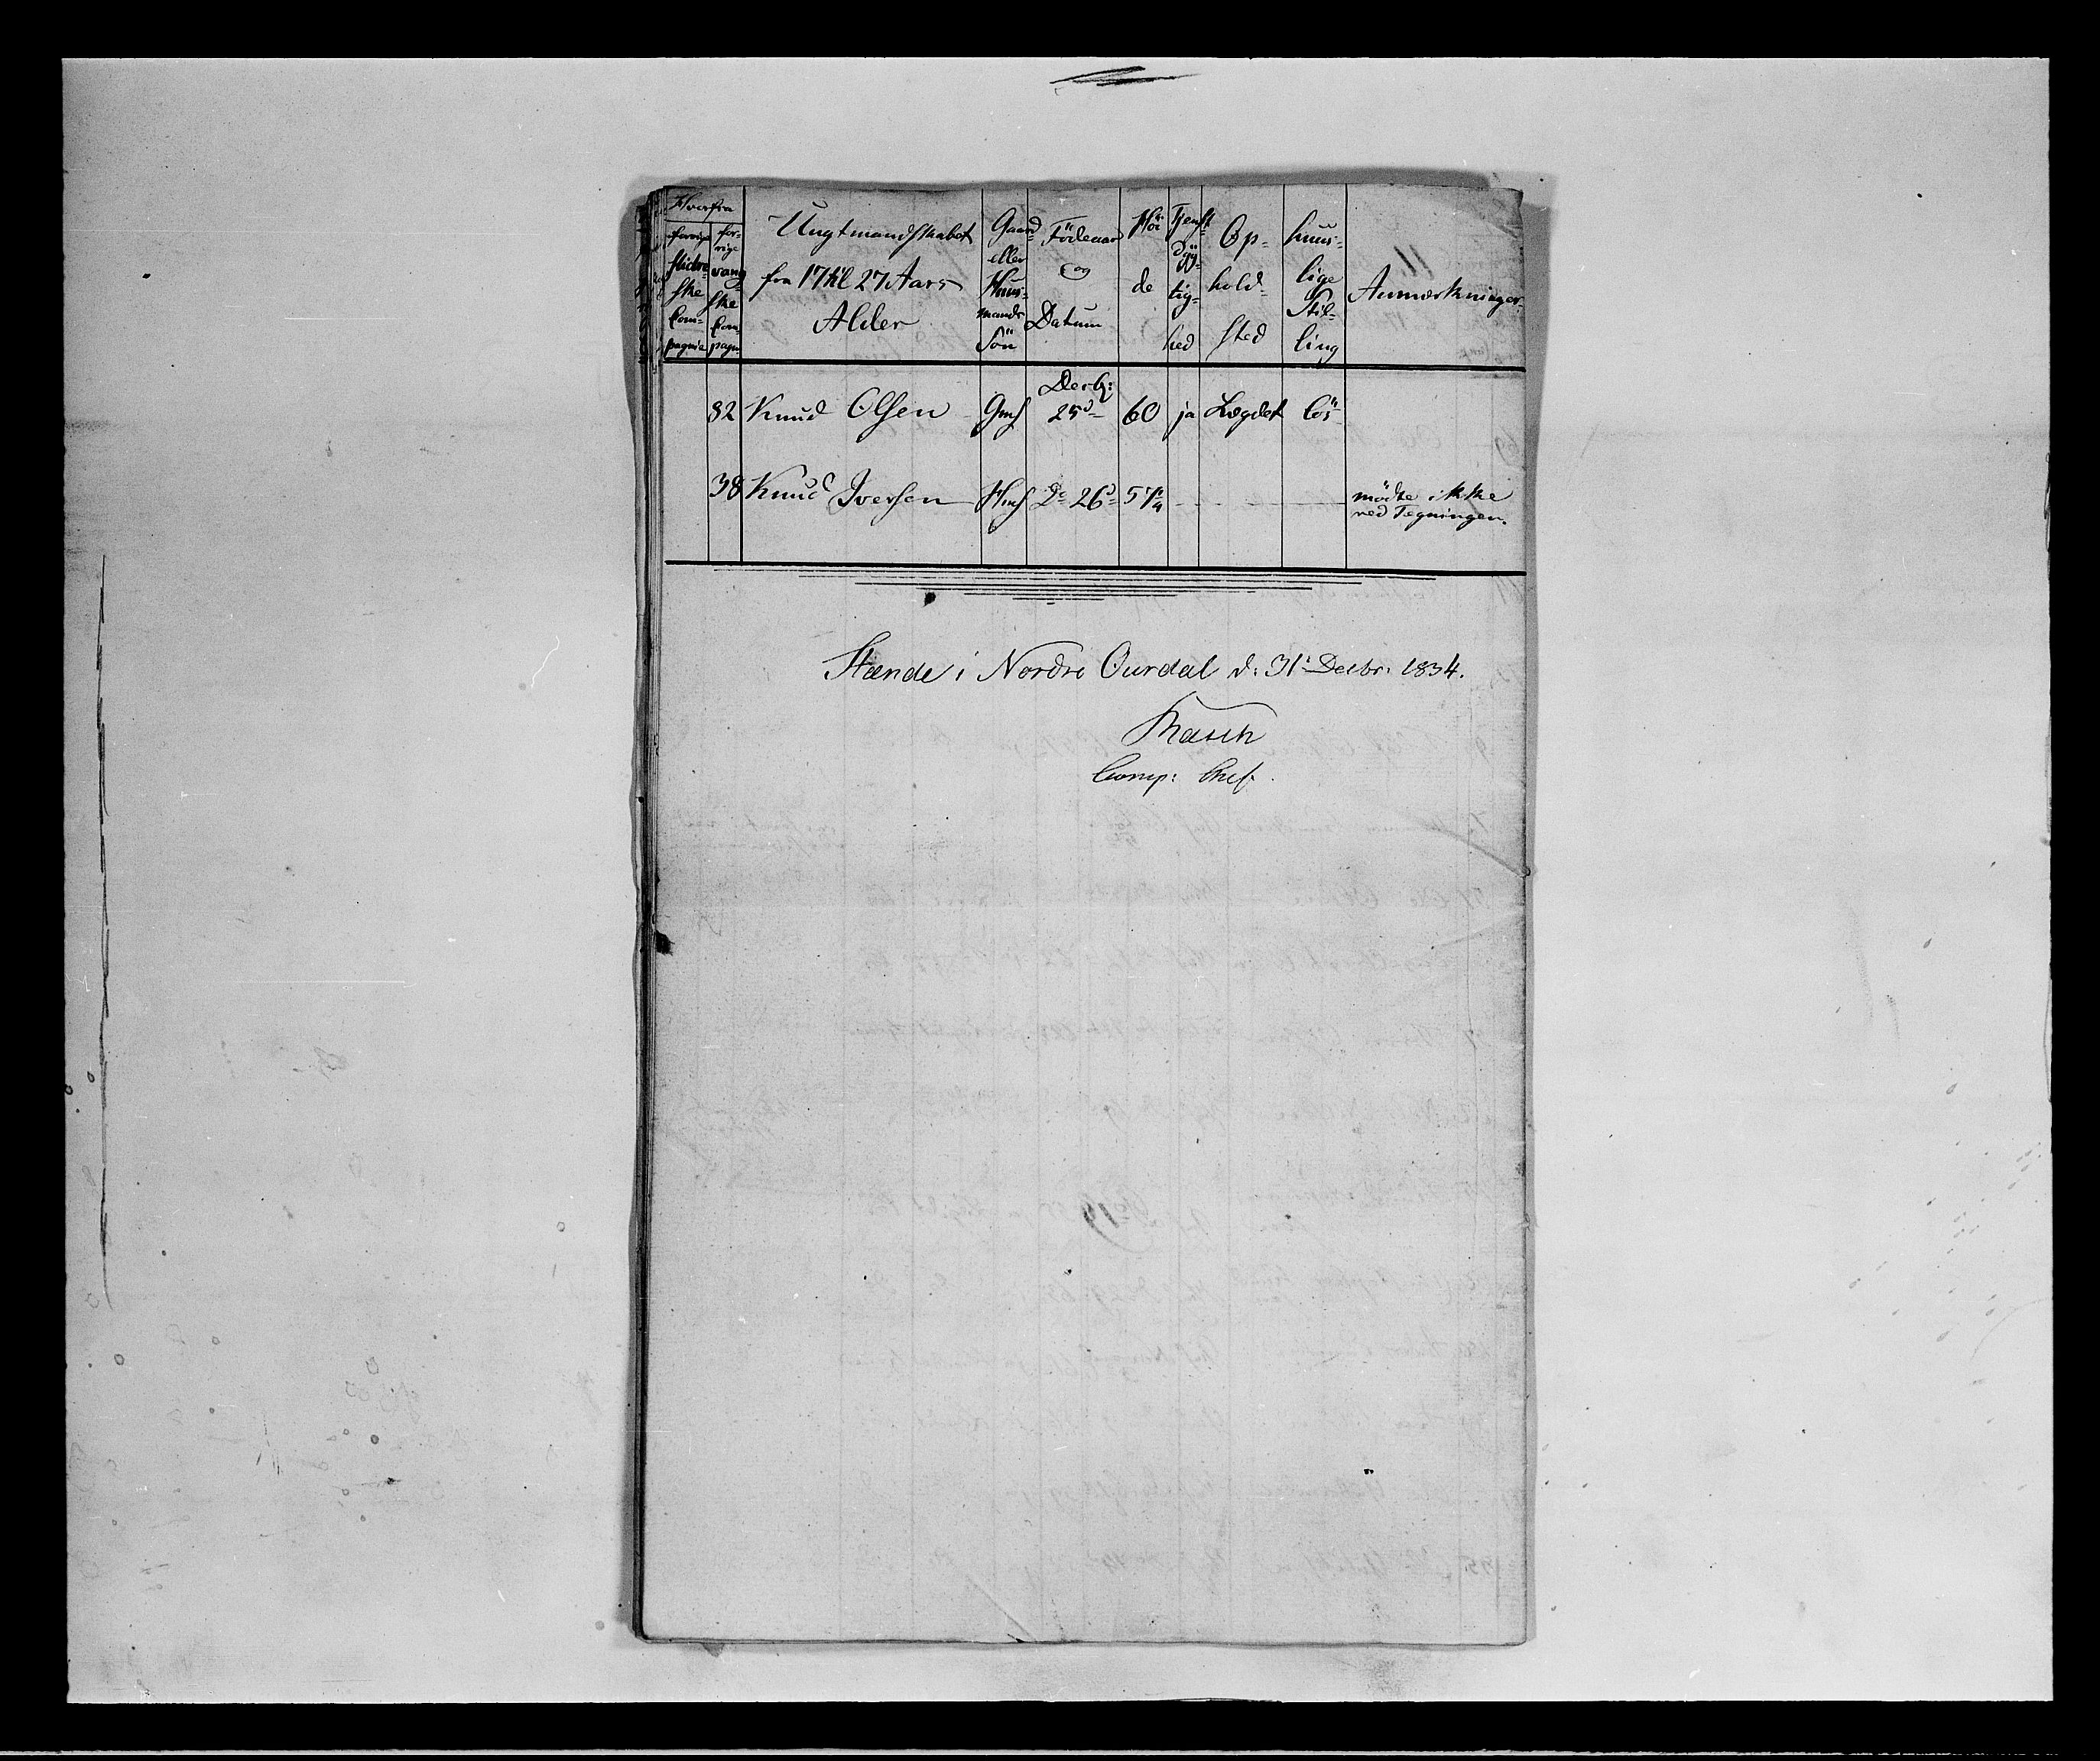 Hvorfra
forrige Slidreske Compagnie
forrige vangske Compagn
Ungtmandskabet fra 17 til 27 Aars Alder
Gaard eller Huusmands Sön
Födeaar og Datum
Höide
Tjenstdygtighed
Opholdsted
huuslige Stilling
Anmærkninger
Decbr:
32 Knud Olsen Gms 25d 60 ja Lægdet lös
38 Knud Iversen Hms Do 26d 57¼ mödte ikke
ved Tegningen.
Stænde i Nordre Ourdal d: 31: Decbr: 1834.
Comp: Chef.